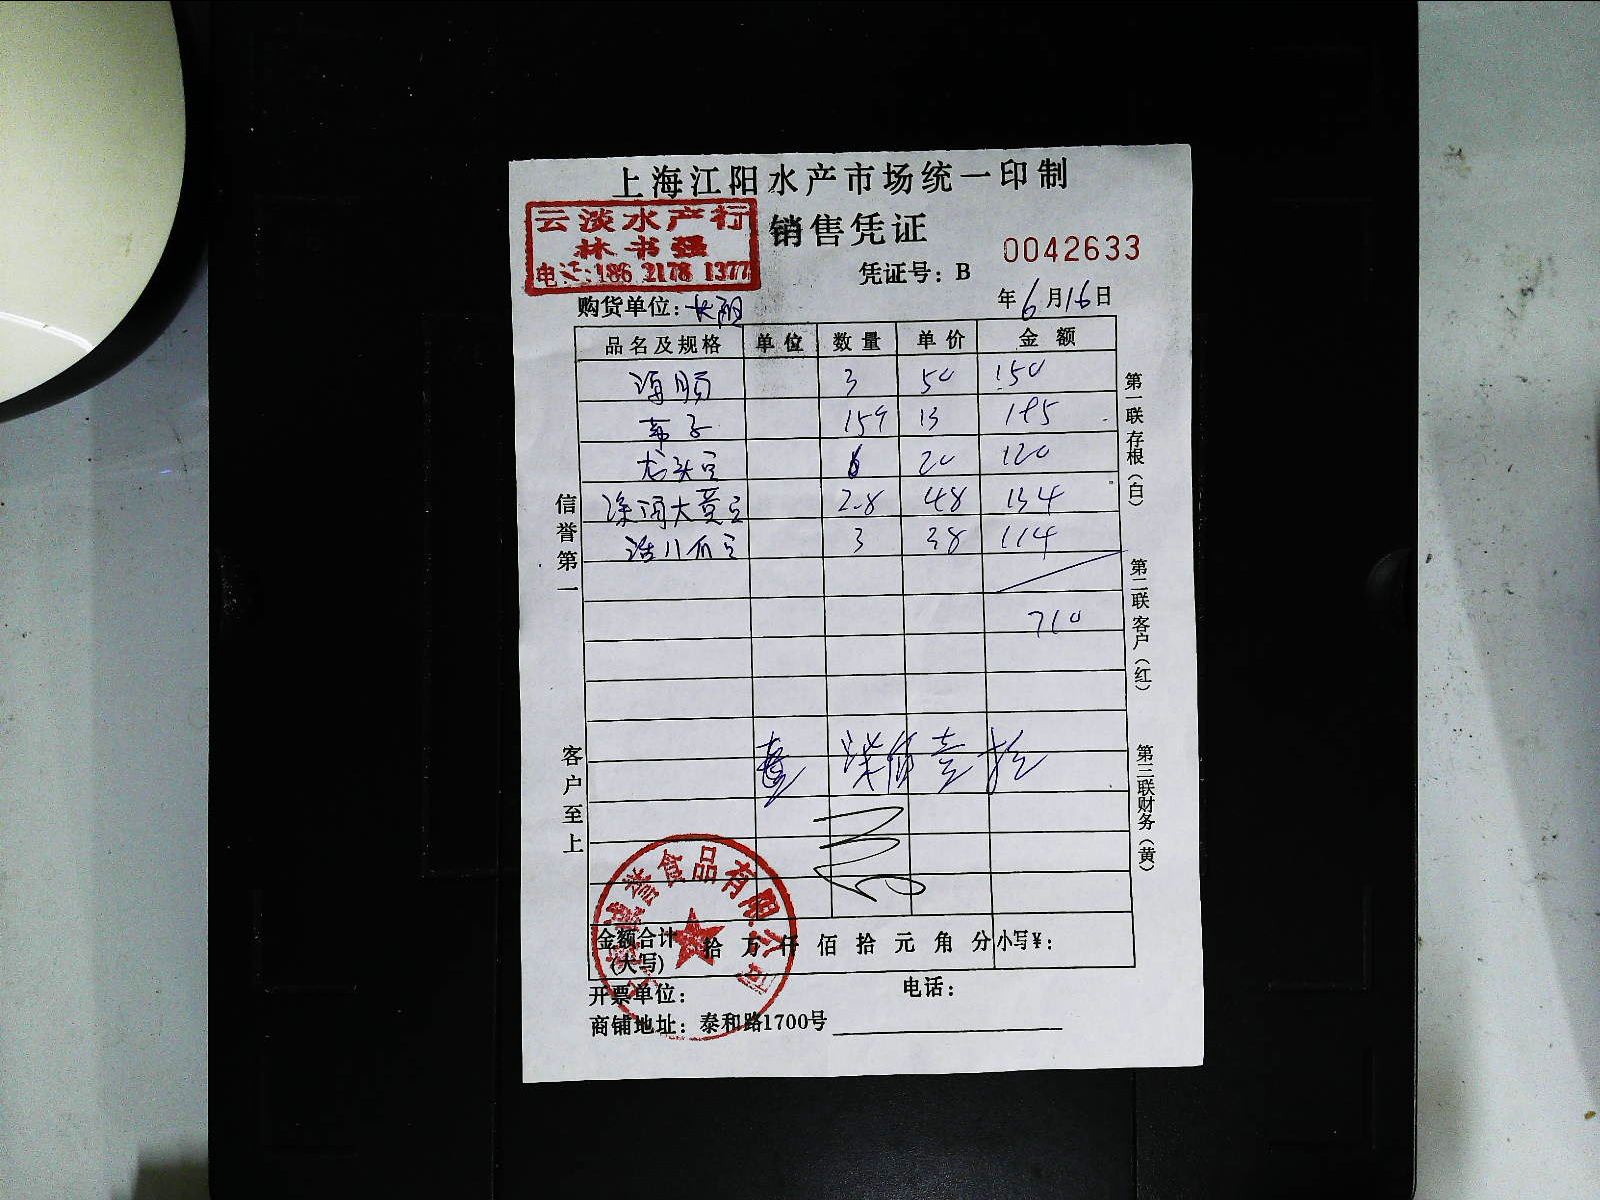 上海江阳水产市场统一印制
云淡水产行
林书强
电话:186 2178 1377
销售凭证
0042633
凭证号：B
购货单位：长阳
年6月16日
品名及规格 单位 数量 单价 金额
3 50 150
15 13 195
龙头 6 20 120
深海大黄 2.8 48 134
活八爪 3 38 114
710
柒佰壹拾
信誉第一
客户至上
第一联存根（白）
第二联客户（红）
第三联财务（黄）
誉食品有限公司
金额合计(大写) 拾 万 仟 佰 拾 元 角 分 小写¥：
开票单位： 电话：
商铺地址：泰和路1700号